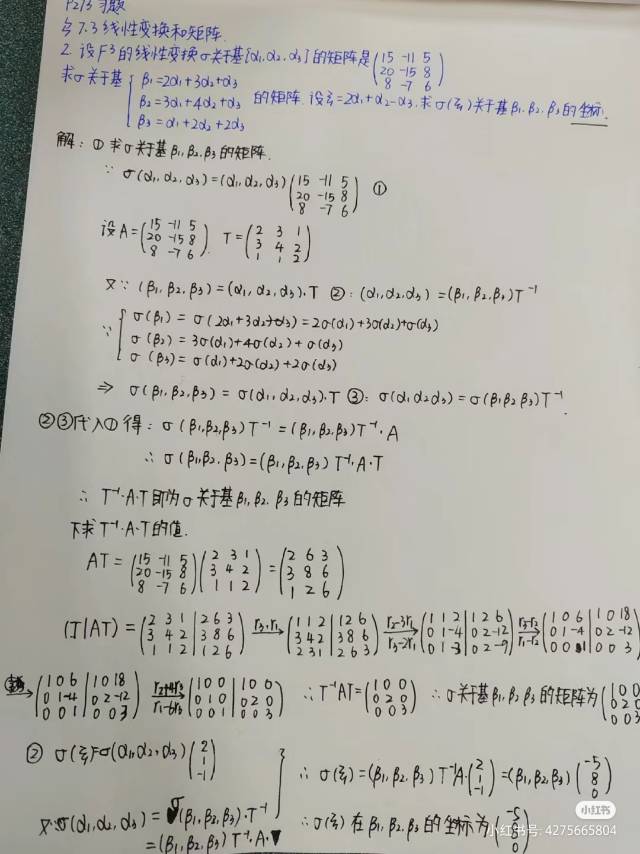 P213 习题
§7.3 线性变换和矩阵.
2. 设F³的线性变换σ关于基{α₁,α₂,α₃}的矩阵是(15 -11 5
20 -15 8
8 -7 6)
求σ关于基{β₁=2α₁+3α₂+α₃
β₂=3α₁+4α₂+α₃ 的矩阵. 设ξ=2α₁+α₂-α₃,求σ(ξ)关于基β₁,β₂,β₃的坐标.
β₃=α₁+2α₂+2α₃
解: ① 求σ关于基β₁,β₂,β₃的矩阵.
∵ σ(α₁,α₂,α₃)=(α₁,α₂,α₃)(15 -11 5
20 -15 8
8 -7 6) ①
设A=(15 -11 5
20 -15 8
8 -7 6). T=(2 3 1
3 4 2
1 1 2)
又∵ (β₁,β₂,β₃)=(α₁,α₂,α₃)·T ②: (α₁,α₂,α₃)=(β₁,β₂,β₃)T⁻¹
∵{σ(β₁)=σ(2α₁+3α₂+α₃)=2σ(α₁)+3σ(α₂)+σ(α₃)
σ(β₂)=3σ(α₁)+4σ(α₂)+σ(α₃)
σ(β₃)=σ(α₁)+2σ(α₂)+2σ(α₃)
⇒ σ(β₁,β₂,β₃)=σ(α₁,α₂,α₃)·T ③: σ(α₁α₂α₃)=σ(β₁β₂β₃)T⁻¹.
②③代入①得: σ(β₁,β₂,β₃)T⁻¹=(β₁,β₂,β₃)T⁻¹·A
∴ σ(β₁,β₂,β₃)=(β₁,β₂,β₃)T⁻¹·A·T
∴ T⁻¹·A·T即为σ关于基β₁,β₂,β₃的矩阵
下求T⁻¹·A·T的值.
AT=(15 -11 5
20 -15 8
8 -7 6)(2 3 1
3 4 2
1 1 2)=(2 6 3
3 8 6
1 2 6)
(T|AT)=(2 3 1|2 6 3
3 4 2|3 8 6
1 1 2|1 2 6) r₃,r₁→(1 1 2|1 2 6
3 4 2|3 8 6
2 3 1|2 6 3) r₂-3r₁ r₃-2r₁→(1 1 2|1 2 6
0 1 -4|0 2 -12
0 1 -3|0 2 -9) r₃-r₂ r₁-r₂→(1 0 6|1 0 18
0 1 -4|0 2 -12
0 0 1|0 0 3)
→(1 0 6|1 0 18
0 1 -4|0 2 -12
0 0 1|0 0 3) r₂+4r₃ r₁-6r₃→(1 0 0|1 0 0
0 1 0|0 2 0
0 0 1|0 0 3) ∴T⁻¹AT=(1 0 0
0 2 0
0 0 3) ∴σ关于基β₁,β₂,β₃的矩阵为(1 0 0
0 2 0
0 0 3)
② σ(ξ)=σ(α₁,α₂,α₃)(2
1
-1)
∴ σ(ξ)=(β₁,β₂,β₃)T⁻¹A·(2
1
-1)=(β₁,β₂,β₃)(-5
8
0)
又∵σ(α₁,α₂,α₃)=σ(β₁,β₂,β₃)·T⁻¹
=(β₁,β₂,β₃)T⁻¹·A·
∴σ(ξ)在β₁,β₂,β₃的坐标为(-5
0)
小红书
小红书号: 4275665804